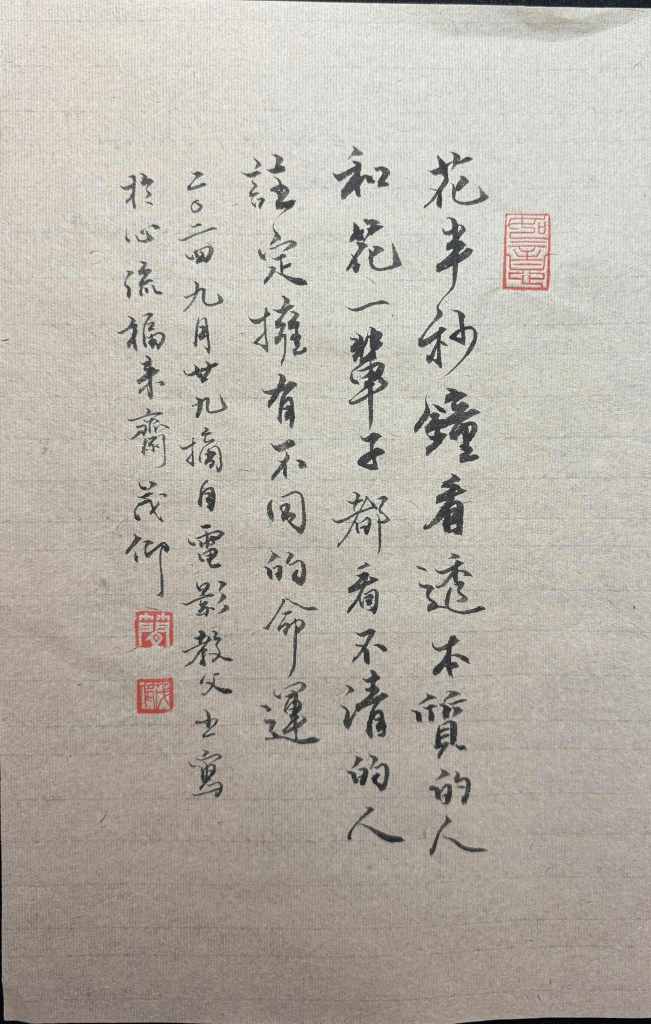 花半秒鐘看透本質的人
和花一輩子都看不清的人
註定擁有不同的命運
二〇二四九月廿九摘自電影教父書寫
於心流福來齋茂仰
簡